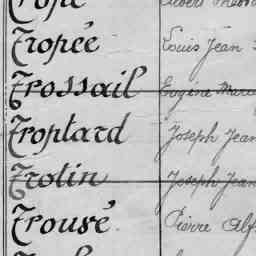 Tropée Louis Jean
Trossail Eugène Marie
Troptard Joseph Jean
Trotin Joseph Jean
Trouvé Pierre Alf